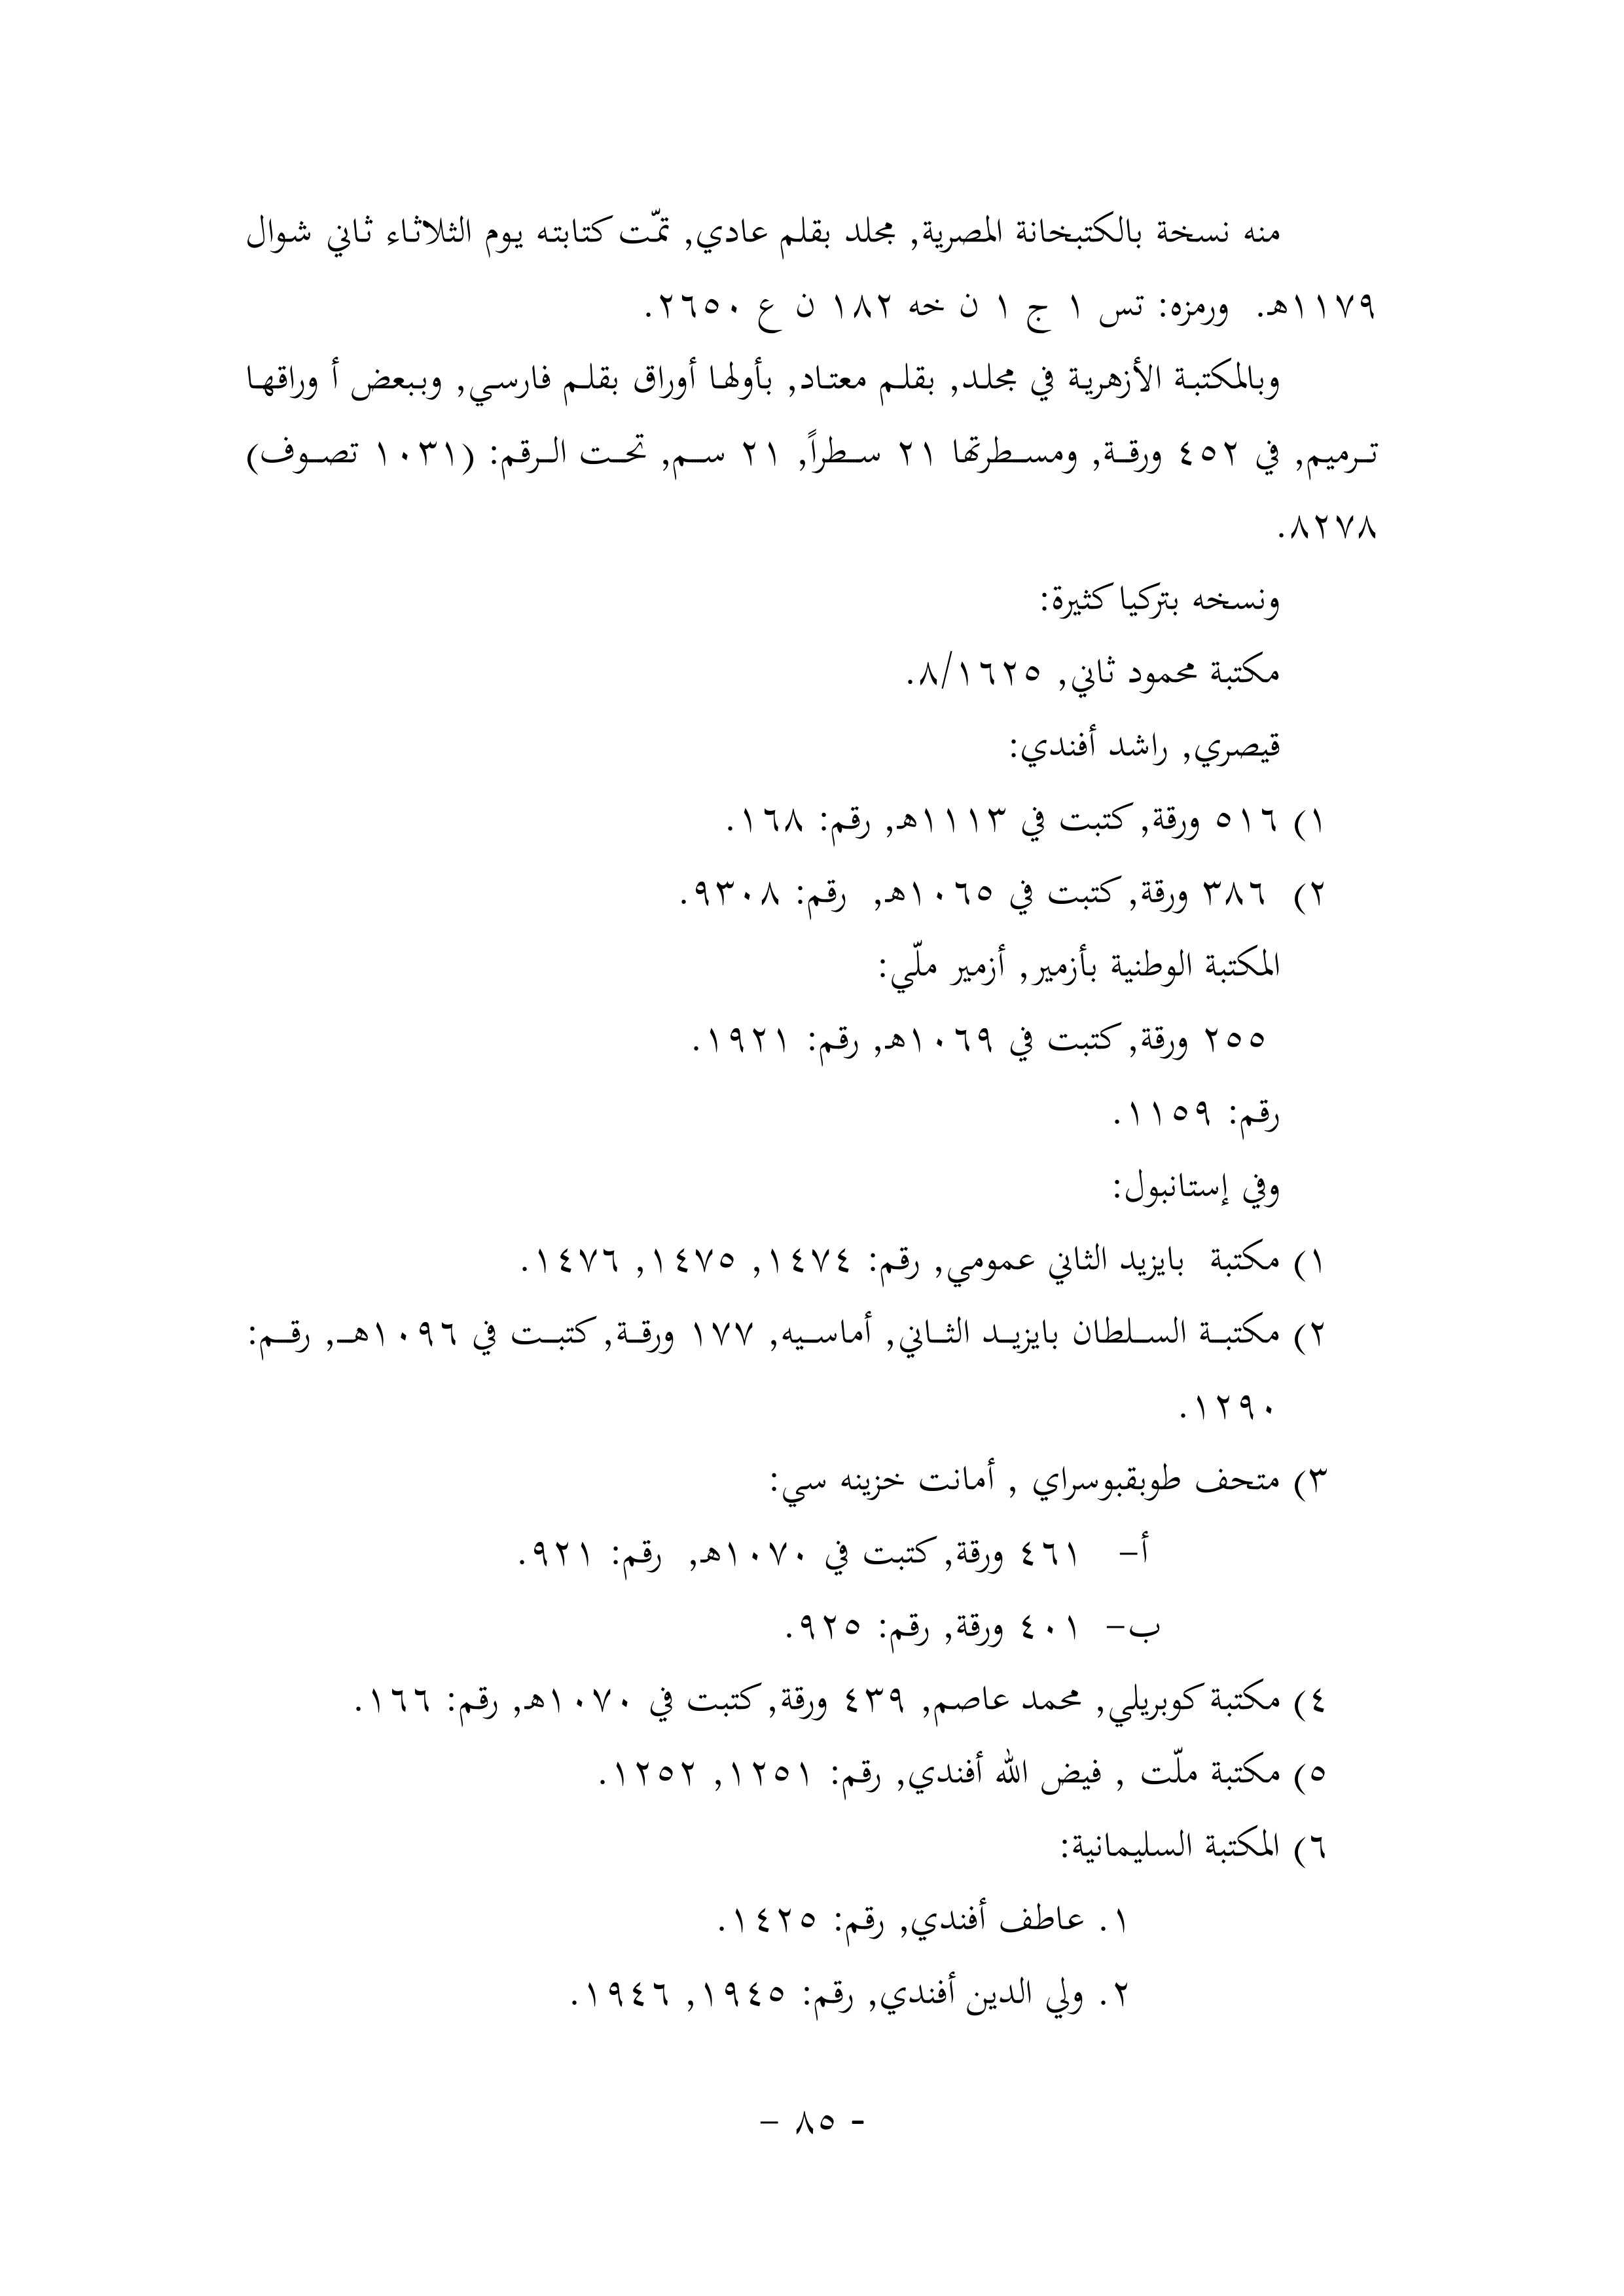 منه نسخة بالكتبخانة المصرية, مجلد بقلم عادي, تمّت كتابته يوم الثلاثاء ثاني شوال
١١٧٩هـ. ورمزه: تس ١ ج ١ ن خه ١٨٢ ن ع ٢٦٥٠.
وبالمكتبة الأزهرية في مجلد, بقلم معتاد, بأولها أوراق بقلم فارسي, وببعض أ وراقها
ترميم, في ٤٥٢ ورقة, ومسطرتها ٢١ سطراً, ٢١ سم, تحت الرقم: (١٠٣١ تصوف)
٨٢٧٨.
ونسخه بتركيا كثيرة:
مكتبة محمود ثاني, ٨/١٦٢٥.
قيصري, راشد أفندي:
١) ٥١٦ ورقة, كتبت في ١١١٣هـ, رقم: ١٦٨.
٢) ٣٨٦ ورقة, كتبت في ١٠٦٥هـ, رقم: ٩٣٠٨.
المكتبة الوطنية بأزمير, أزمير ملّي:
٢٥٥ ورقة, كتبت في ١٠٦٩هـ, رقم: ١٩٢١.
رقم: ١١٥٩.
وفي إستانبول:
١) مكتبة بايزيد الثاني عمومي, رقم: ١٤٧٤, ١٤٧٥, ١٤٧٦.
٢) مكتبة السلطان بايزيد الثاني, أماسيه, ١٧٧ ورقة, كتبت في ١٠٩٦هـ, رقم:
١٢٩٠.
٣) متحف طوبقبوسراي , أمانت خزينه سي:
أ- ٤٦١ ورقة, كتبت في ١٠٧٠هـ, رقم: ٩٢١.
ب- ٤٠١ ورقة, رقم: ٩٢٥.
٤) مكتبة كوبريلي, محمد عاصم, ٤٣٩ ورقة, كتبت في ١٠٧٠هـ, رقم: ١٦٦.
٥) مكتبة ملّت , فيض الله أفندي, رقم: ١٢٥١, ١٢٥٢.
٦) المكتبة السليمانية:
١. عاطف أفندي, رقم: ١٤٢٥.
٢. ولي الدين أفندي, رقم: ١٩٤٥, ١٩٤٦.
- ٨٥ -